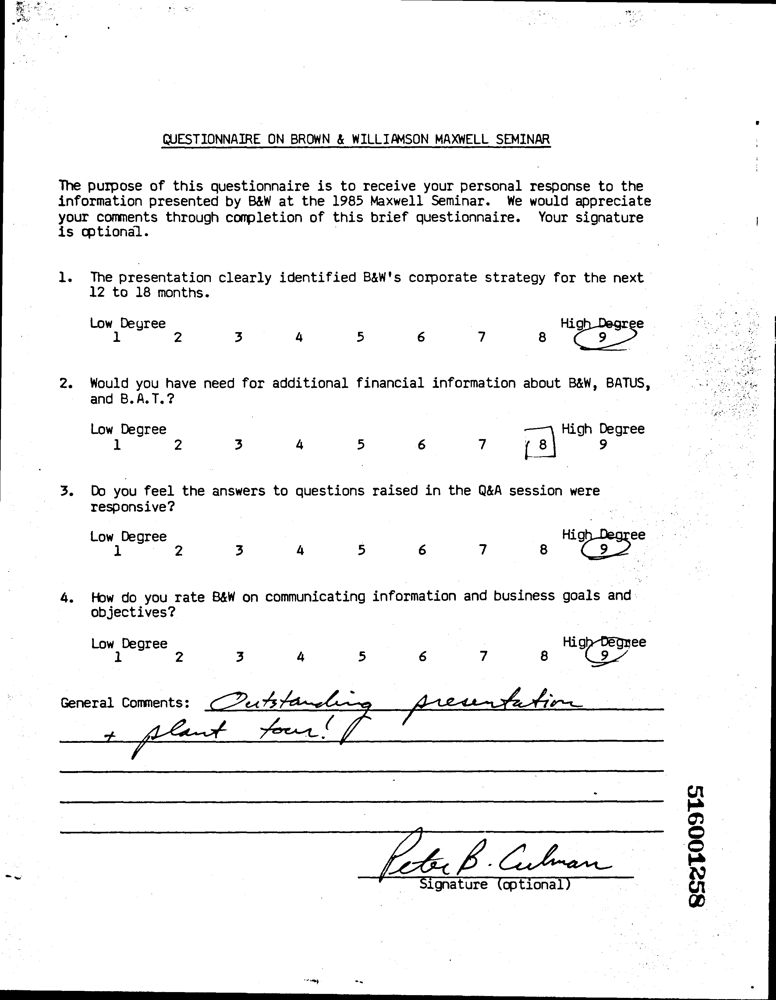 QUESTIONNAIRE ON BROWN & WILLIAMSON MAXWELL SEMINAR
The purpose of this questionnaire is to receive your personal response to the
information presented by B&W at the 1985 Maxwell Seminar. We would appreciate
your comments through completion of this brief questionnaire. Your signature
is optional.
1. The presentation clearly identified B&W's corporate strategy for the next
12 to 18 months.
Low Degree High Degree
1 2 3 4 5 6 7 8 9
2. Would you have need for additional financial information about B&W, BATUS,
and B.A.T.?
Low Degree High Degree
1 2 3 4 5 6 7 8 9
3. Do you feel the answers to questions raised in the Q&A session were
responsive?
Low Degree High Degree
1 2 3 4 5 6 7 8 9
4. How do you rate B&W on communicating information and business goals and
objectives?
Low Degree High Degree
1 2 3 4 5 6 7 8 9
General Comments: Outstanding presentation
+ plant tour!
Peter B. Culman
Signature (optional)
516001258